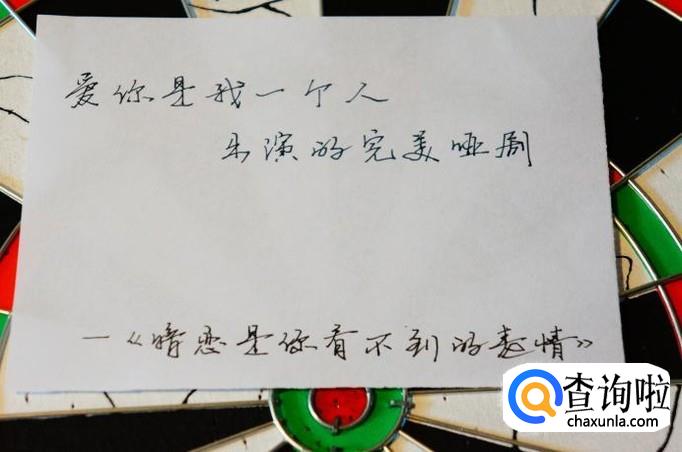 爱你是我一个人
出演的完美哑剧
—《暗恋是你看不到的表情》
查询啦
chaxunla.com